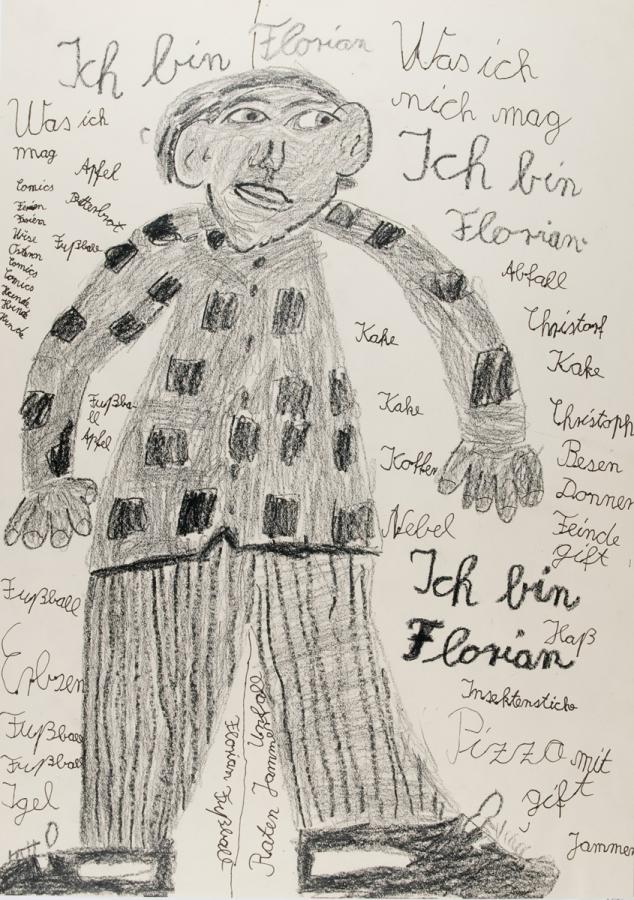 Ich bin Florian
Was ich
mag
Apfel
Comics
Butterbrot
Ferien
Wise
Fußball
Ostern
Comics
Comics
Hunde
Hunde
Hunde
Fußba-
ll
Apfel
Fußball
Erbsen
Fußball
Fußball
Igel
Florian Fußball
Raten Jammer Unfall
Was ich
nich mag
Ich bin
Florian
Abfall
Christorf
Kake
Kake
Kake
Christoph
Koffer
Besen
Donner
Nebel
Feinde
gift
Ich bin
Florian
Haß
Insektenstiche
Pizza mit
gift
Jammer